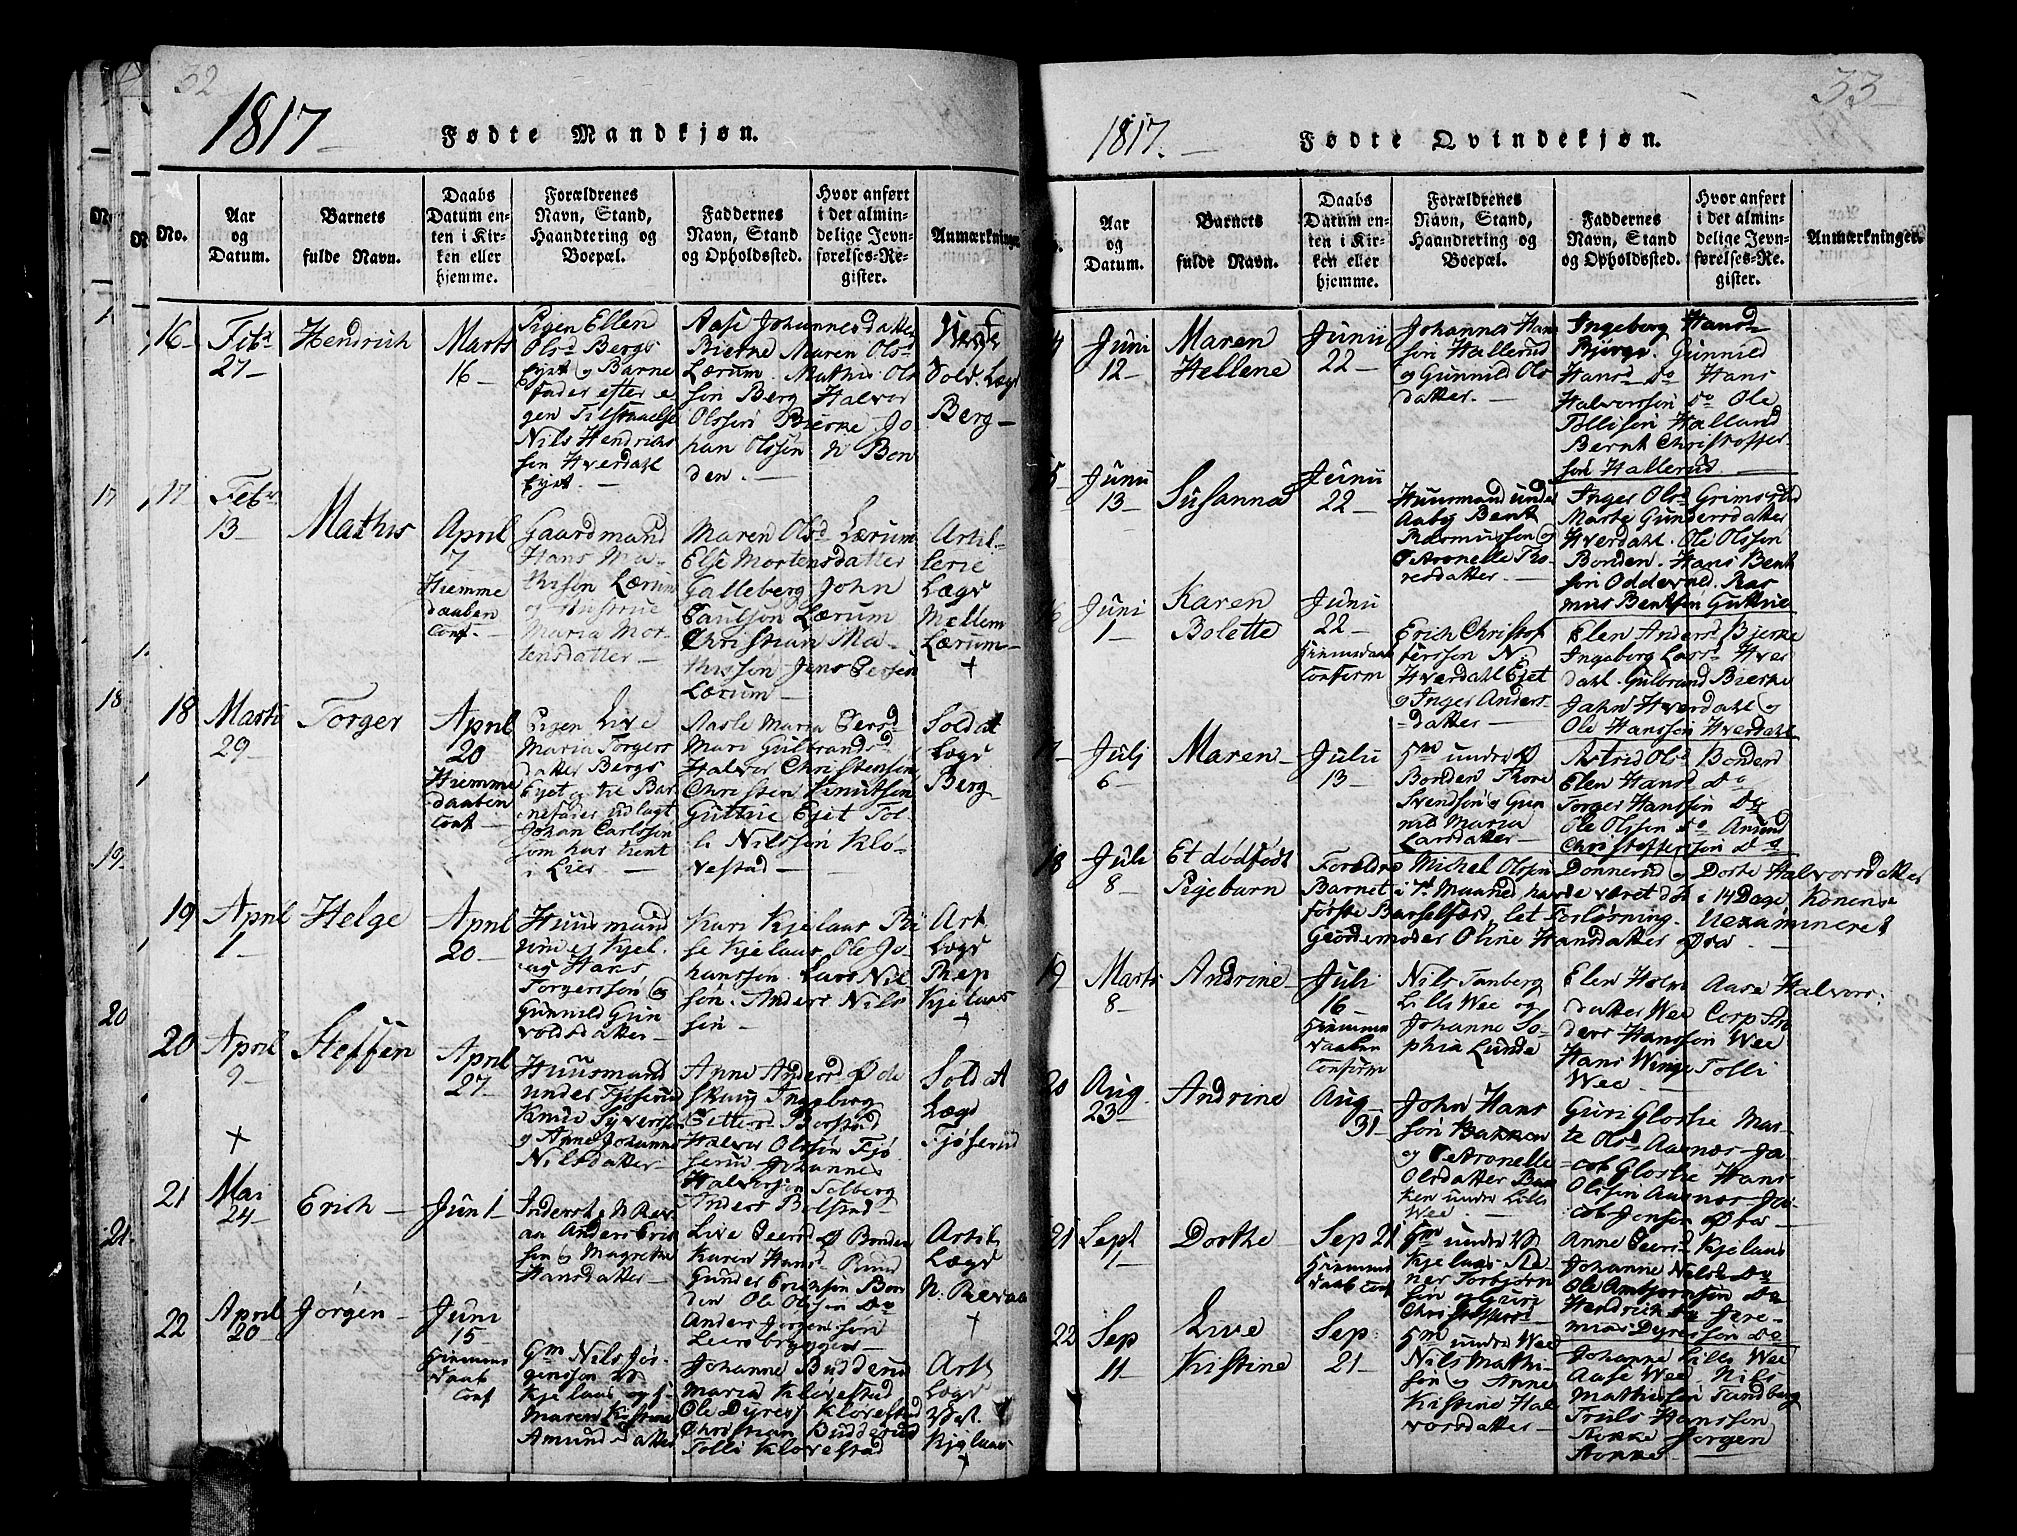 32
1817
Fødte Mandkjøn.
No.
Aar
og
Datum.
Barnets
fulde Navn.
Daabs
Datum en-
ten i Kir-
ken eller
hjemme.
Forældrenes
Navn, Stand,
Haandtering og
Boepæl.
Faddernes
Navn, Stand
og Opholdssted.
Hvor anført
i det almin-
delige Jevn-
førelses-Re-
gister.
Anmærkninger
16
Febr
27
Hendrich
Marts
16
Pigen Ellen
Olsd Bergs
Ejet og Barne
fader efter e-
gen Tilstaaelse
Nils Hendrichs
søn Hverdahl
Ejet.
Aase Johannesdatter
Bierke Maren Olsd
Lærum. Mathis Ols
søn Berg Halvor
Olssøn Bierke. Jo
han Olssøn N Bon
den.
Vold. Lægd
Berg
17
Febr
13
Mathis
April
7
Hiemme
daaben
Conf.
Gaardmand
Hans Ma-
thisøn Lærum
og Hustrue
Maria Mor-
tensdatter
Maren Olsd Lærum
Else Mortensdatter
Galleberg John
Paulsøn Lærum
Christian Ma-
thissøn Jens
Lærum
Artil-
lerie
Lægd
Mellem
Lærum
+
18
Marts
29
Torger
April
20
Hiemme
daaben
Conf
Pigen Live
Maria Torgers
datter Bergs
Ejet og til Bar
nefader udlagt
Johan Carlssøn
som har tient
i Lier.
Maria Peersd
Mari Gulbrandsd
Halvor Christensøn
Christen Knutsøn
Guttue Ejet Tol-
le Nilssøn Klo-
vestad
Soldat
Lægd
Berg
19
April
1
Helge
April
20
Huusmand
Kjel-
aas Hans
Torgerssøn og
Gunnild Gun
voldsdatter
Kari Kjelaas
Kjelaas Ole Jo-
hanssøn. Lars Nil
søn. Anders Nils
søn
Art.
Lægd
Kjelaas
+
20
April
9
+
Steffen
April
27
Huusmand
under Fjøserud
Knud Syverssøn
og Anne Johanne
Nilsdatter
Anne Andersd Øde
skoug Ingeberg
Pettersd Borstad
Halvor Olssøn Fjø
serud Johannes
Halvorsøn Solberg
Anders Bolstad
Soldat
Lægd
Fjøserud
21
Mai
24
Erich
Juni 1
Inderst N Rev
aa Anders Eric
søn og Magrethe
Hansdatter
Live Peersd Ø Bonden
Karen Hansd Rund
Gunder Erichsøn Bon
den Ole Olssøn Do
Anders Jørgensøn
Leersbryggen
Artil
Lægd
N. Revaa
+
22
April
20
Jørgen
Juni
15
Hiemme
daab
Conf
Gm Nils Jør
genssøn V
Kjelaas og H
Maren Kistine
Amundsdatter
Johanne Budderud
Maria Klovestad
Ole Dyres Klovestad
Christian Budderud
Tolle Klovestad
Art.
Lægd
Vest.
Kjelaas
+
33
1817.
Fødte Qvindekjøn.
Aar
og
Datum.
Barnets
fulde Navn.
Daabs
Datum en-
ten i Kir-
ken eller
hjemme.
Forældrenes
Navn, Stand,
Haandtering og
Boepæl.
Faddernes
Navn, Stand
og Opholdssted.
Hvor anført
i det almin-
delige Jevn-
førelses-Re-
gister.
Anmærkninger.
4
Juni
12
Maren
Hellene
Junii
22
Johannes Han
søn Hallerud
og Gunnild Ols
datter.
Ingeberg Hansd
Bjerge. Gunnild
Hansd do Hans
Halvorssøn do Ole
Tollisøn Halland
Bernt Christoffer
søn Hallerud.
5
Junii
13
Susanna
Junii
22
Huusmand under
Aaby Bent
Rasmussøn og
Petronelle Tho-
resdatter
Inger Olsd Grimsrud
Marte Gundersdatter
Hverdahl. Ole Olssøn
Bonden. Hans Bent
søn Oddevved. Ras
mus Bentsøn Guttue
16
Juni
1
Karen
Bolette
Junii
22
Hiemmedaab
Confirm
Erich Christof
ferssøn N
Hverdahl Ejet
og Inger Anders
datter
Elen Andersd Bjerke
Ingeberg Larsd Hver
dahl. Gulbrand Bierke
Jahn Hverdahl og
Ole Hanssøn Hverdahl
17
Julj
6
Maren
Julii
13
Hm under Ø
Bonden Thore
Svendsøn og Gun
nild Maria
Larsdatter
Astrid Olsd Bonden
Elen Hansd Do
Torger Hanssøn Do
Ole Olssøn do Amund
Christoffersøn Do
18
Juli
8
Et dødfødt
Pigebarn
Forældre Michel Olssøn Donnerud og Dorte Halvorsdatter
Barnet i 7d Maaned havde været død i 14 Dage Konens
første Barselfærd, let Forløsning.
Giordemoder Oline Hansdatter Øra
Uexamineret
19
Marts
8
Andrine
Juli
16
Hiemme
daaben
Confirm
Nils Tanberg
Lille Wee og
Johanne So-
phia Lunde
Elen Holm Aase Halvors:
datter Wee Corp An
ders Hanssøn Wee
Hans Winge Tolli
Wee
20
Aug
23
Andrine
Aug
31
John Hans
søn Bakken
og Petronelle
Olsdatter Bak
ken under Lille
Wee
Guri Gloslie Mar-
te Olsd Aasnæs Ja-
cob Gloslie Hans
Olssøn Aasnæs Ja-
cob Jensøn Øbø
21
Sept
1
Dorthe
Sep 21
Hiemme
daab Conf
Hm under V
Kjelaas
Torbjørn
søn og Guri
Christoffersd
Anne Peersd Kjelaas
Johanne Nilsd Do
Ole Ambjørnsøn Do
Hendrich do Jere-
mias Dyressøn do
22
Sep
11
Live
Kristine
Sep:
21
Hm under Wee
Nils Mathi-
søn og Anne
Kistine Hal
vorsdatter
Johanne Lille Wee
Aase Wee. Nils
Mathiessøn Tandberg
Truls Hanssøn
Kokke Jørgen
Kokke